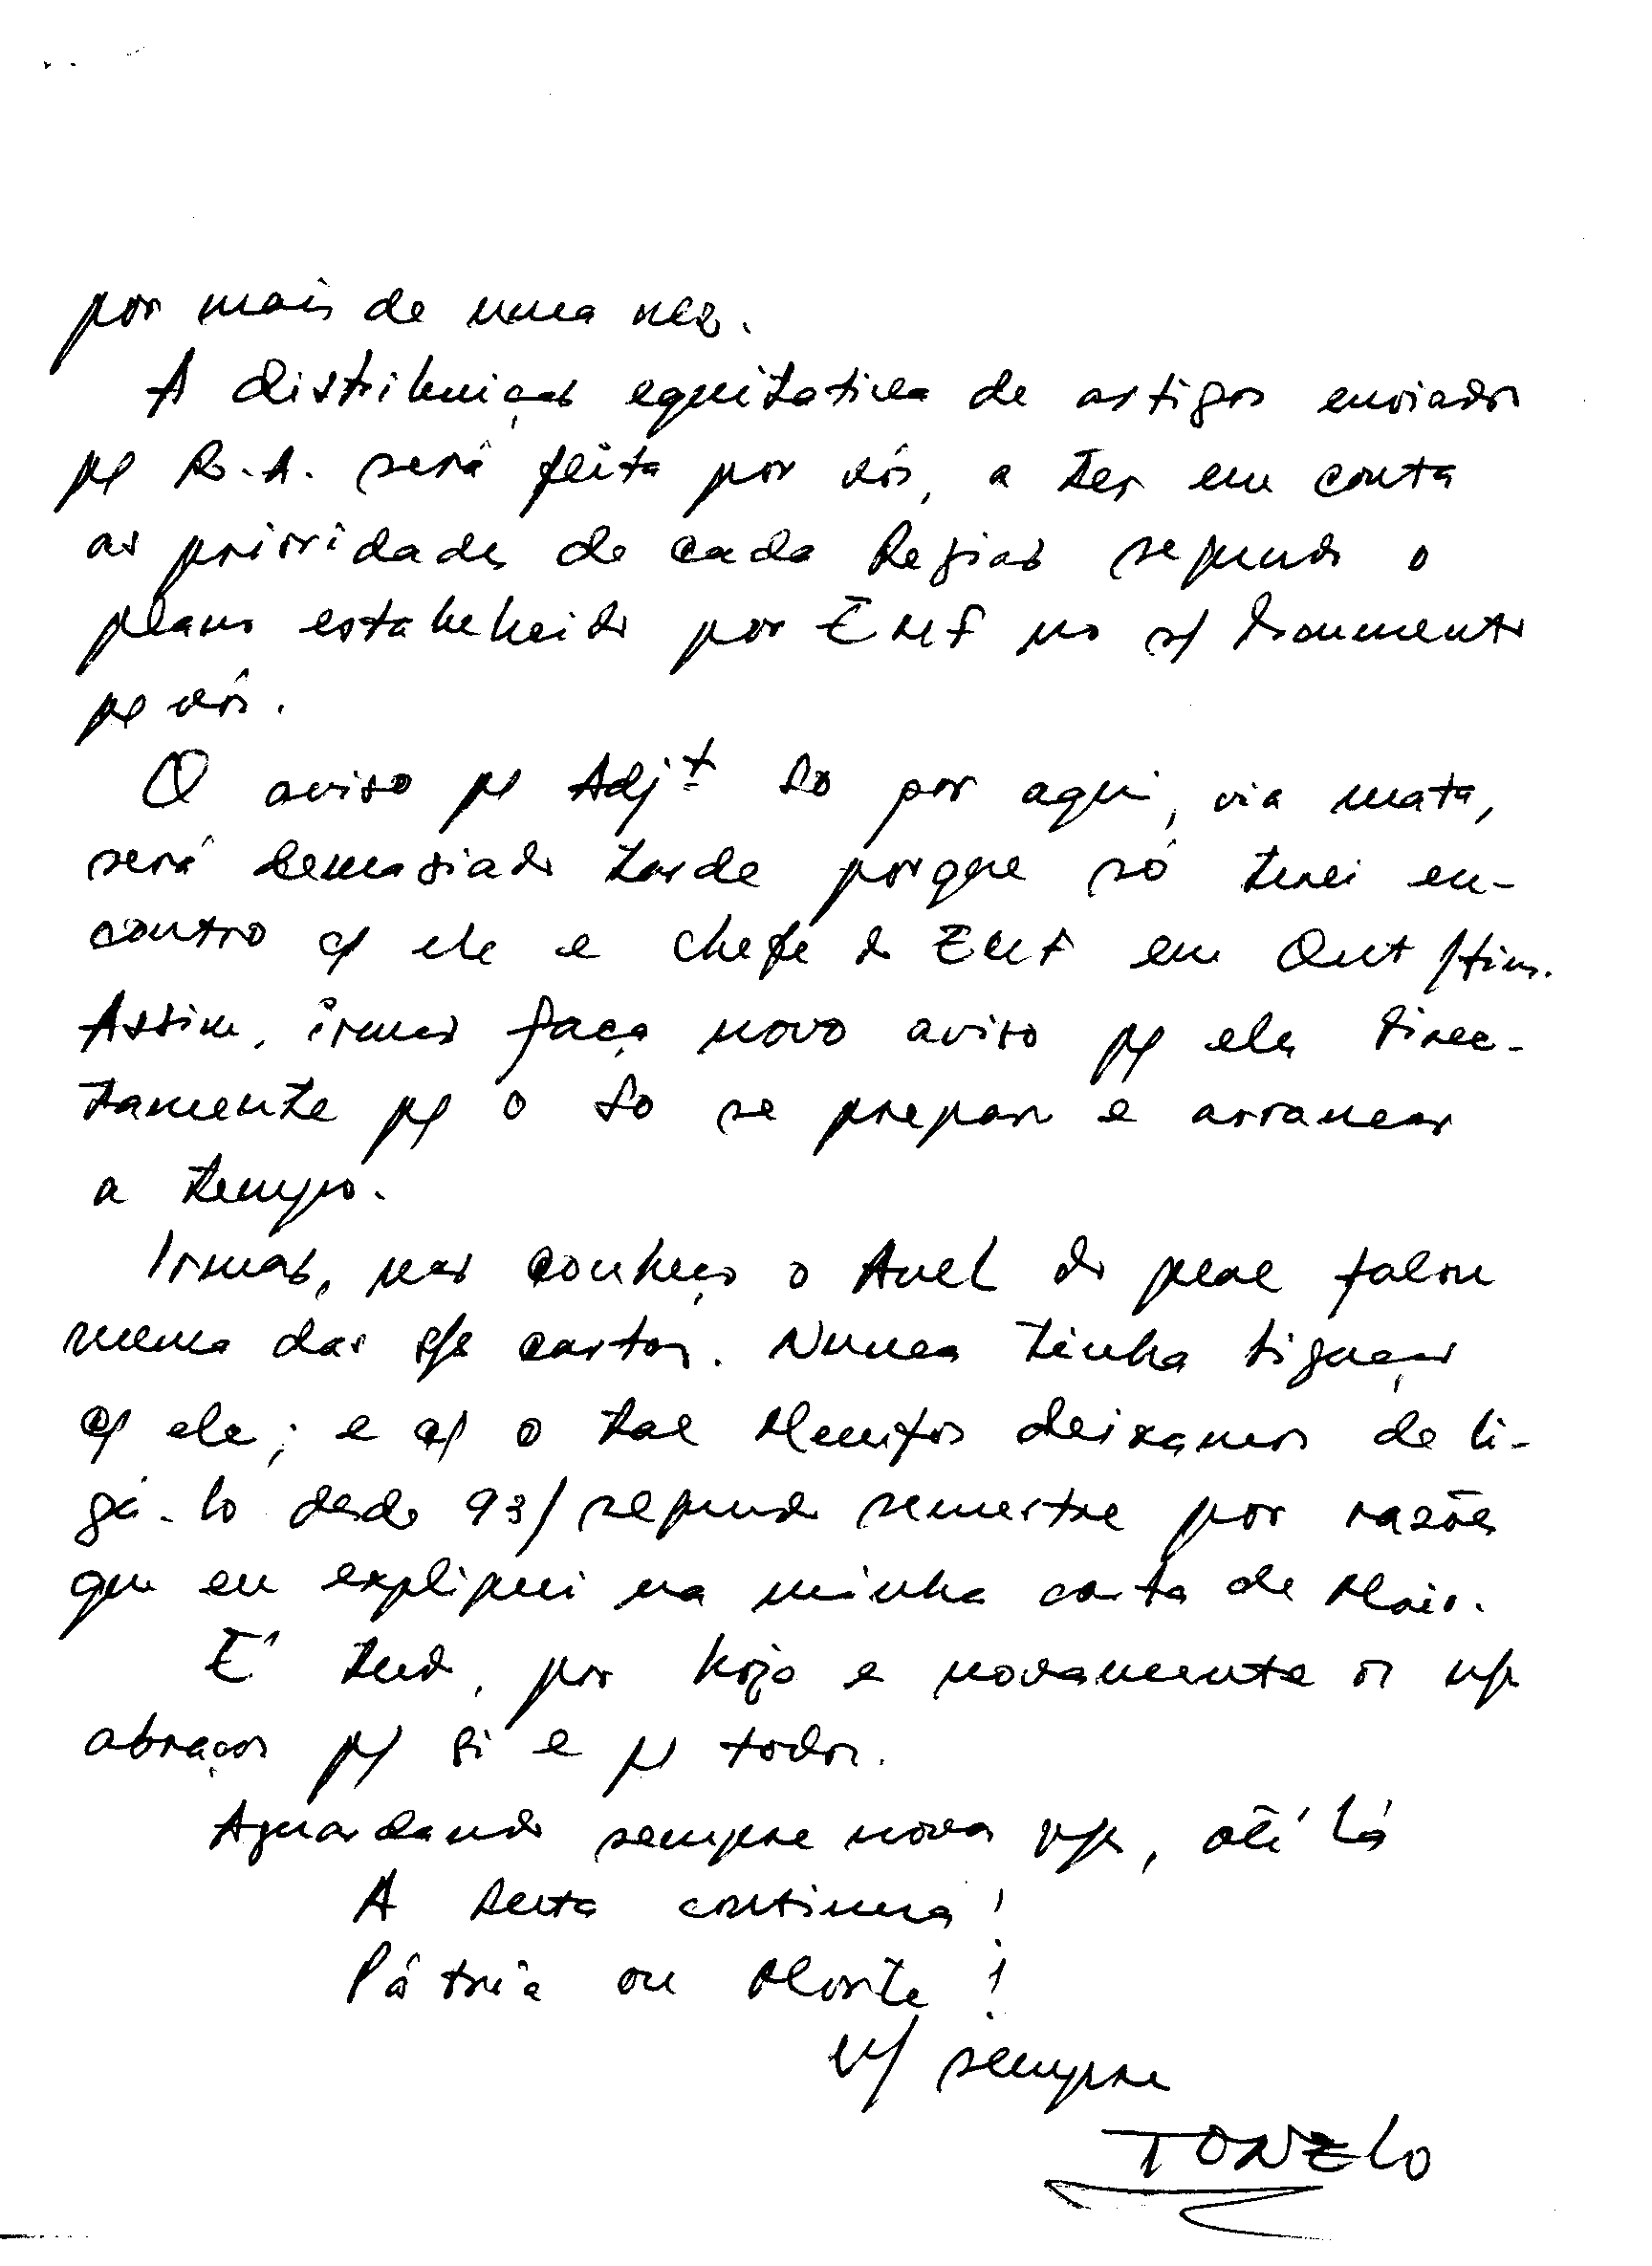 por mais de uma vez.
A distribuição equitativa de artigos enviados
p/ R.A. será feita por vós, a ter em conta
as prioridades de cada Região segundo o
plano estabelecido por EMF no s/ documento
p/ vós.
O aviso p/ Adjt. Lo por aqui, via mata,
será demasiado tarde porque só terei en-
contro c/ ele e chefe do EMF em Out
Assim, irmão faça novo aviso p/ eles direc-
tamente p/ o Lo se preparar e arrancar
a tempo.
Irmão, não conheço o Anel do qual falou
numa das s/s cartas. Nunca tinha ligação
c/ ele; e c/ o tal Menifos deixamos de li-
gá-lo desde 93/segundo semestre por razões
que eu expliquei na minha carta de Maio.
É tudo, por hoje e novamente os n/s
abraços p/ si e p/ todos.
Aguardando sempre novas v/s, até lá
A luta continua!
Pátria ou Morte!
V/ sempre
TONELO